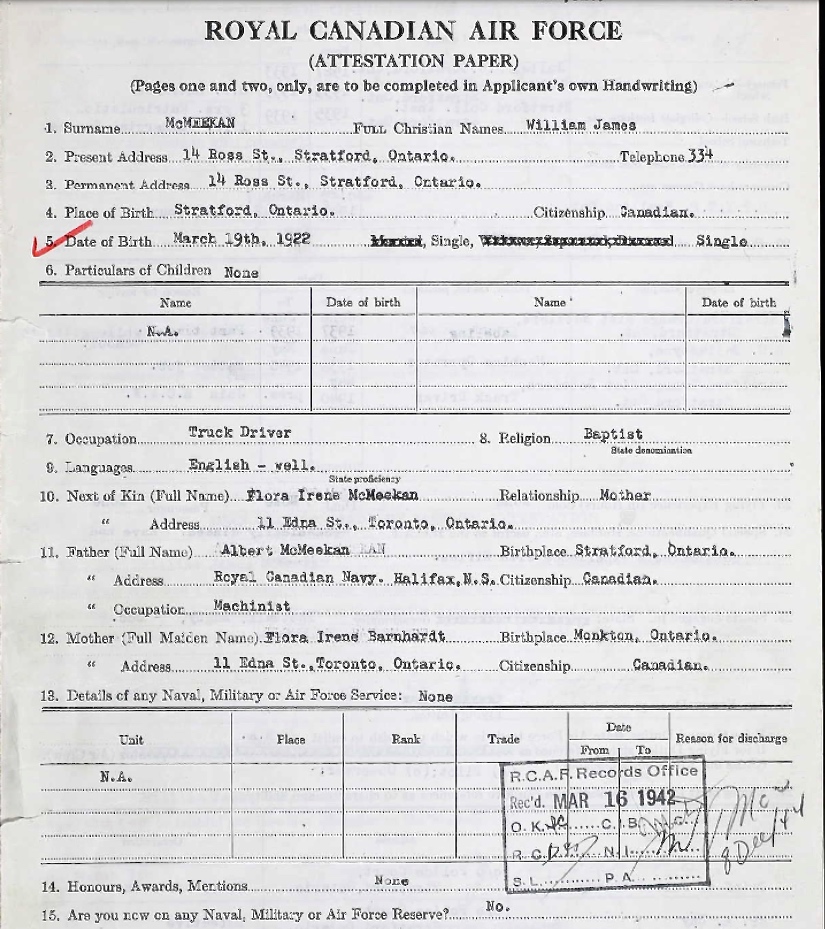 ROYAL CANADIAN AIR FORCE
(ATTESTATION PAPER)
(Pages one and two, only, are to be completed in Applicant's own Handwriting)
1. Surname McMEEKAN FULL Christian Names William James
2. Present Address 14 Ross St., Stratford, Ontario. Telephone 334
3. Permanent Address 14 Ross St., Stratford, Ontario.
4. Place of Birth Stratford, Ontario. Citizenship Canadian.
5. Date of Birth March 19th, 1922 Single, Single
6. Particulars of Children None
Name Date of birth Name Date of birth
N.A.
7. Occupation Truck Driver 8. Religion Baptist
State denomination
9. Languages English - well.
State proficiency
10. Next of Kin (Full Name) Flora Irene McMeekan Relationship Mother
" Address 11 Edna St., Toronto, Ontario.
11. Father (Full Name) Albert McMeekan Birthplace Stratford, Ontario.
" Address Royal Canadian Navy. Halifax, N.S. Citizenship Canadian.
" Occupation Machinist
12. Mother (Full Maiden Name) Flora Irene Barnhardt Birthplace Monkton, Ontario.
" Address 11 Edna St., Toronto, Ontario. Citizenship Canadian.
13. Details of any Naval, Military or Air Force Service: None
Unit Place Rank Trade Date From To Reason for discharge
N.A.
R.C.A.F. Records Office
Rec'd. MAR 16 1942
O.K. C.I.B.
R.C. N.I.
S.L. P.A.
8 Dec/44
14. Honours, Awards, Mentions None
15. Are you now on any Naval, Military or Air Force Reserve? No.